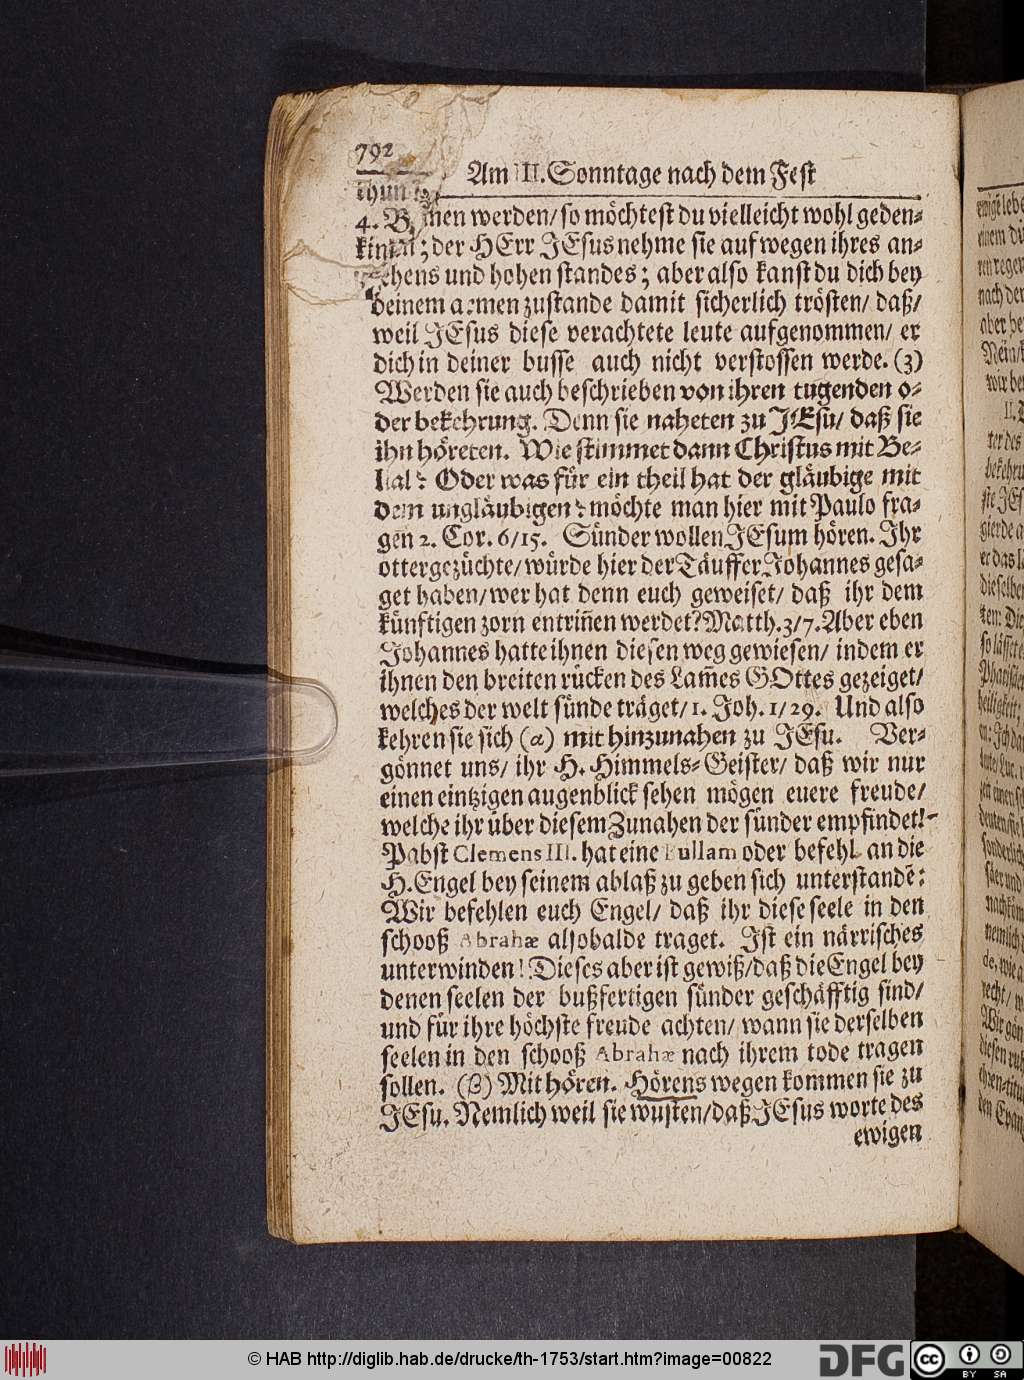 792
Am III. Sonntage nach dem Fest
thun
4. nen werden/ so möchtest du vielleicht wohl geden-
; der HErr JEsus nehme sie auf wegen ihres an-
sehens und hohen standes; aber also kanst du dich bey
deinem armen zustande damit sicherlich trösten/ daß/
weil JEsus diese verachtete leute aufgenommen/ er
dich in deiner busse auch nicht verstossen werde. (3)
Werden sie auch beschrieben von ihren tugenden o-
der bekehrung. Denn sie naheten zu JEsu/ daß sie
ihn höreten. Wie stimmet dann Christus mit Be-
lial? Oder was für ein theil hat der gläubige mit
dem ungläubigen? möchte man hier mit Paulo fra-
gen 2. Cor. 6/15. Sünder wollen JEsum hören. Ihr
ottergezüchte/ würde hier der Täuffer Johannes gesa-
get haben/ wer hat denn euch geweiset/ daß ihr dem
künftigen zorn entrin̄en werdet? Matth. 3/7. Aber eben
Johannes hatte ihnen diesen weg gewiesen/ indem er
ihnen den breiten rücken des Lam̄es GOttes gezeiget/
welches der welt sünde träget/ 1. Joh. 1/29. Und also
kehren sie sich (α) mit hinzunahen zu JEsu. Ver-
gönnet uns/ ihr H. Himmels-Geister/ daß wir nur
einen eintzigen augenblick sehen mögen euere freude/
welche ihr über diesem Zunahen der sünder empfindet!
Pabst Clemens III. hat eine Bullam oder befehl an die
H. Engel bey seinem ablaß zu geben sich unterstandē:
Wir befehlen euch Engel/ daß ihr diese seele in den
schooß Abrahæ alsobalde traget. Ist ein närrisches
unterwinden! Dieses aber ist gewiß/ daß die Engel bey
denen seelen der bußfertigen sünder geschäfftig sind/
und für ihre höchste freude achten/ wann sie derselben
seelen in den schooß Abrahæ nach ihrem tode tragen
sollen. (β) Mit hören. Hörens wegen kommen sie zu
JEsu. Nemlich weil sie wusten/ daß JEsus worte des
ewigen
© HAB http://diglib.hab.de/drucke/th-1753/start.htm?image=00822
DFG
cc BY SA